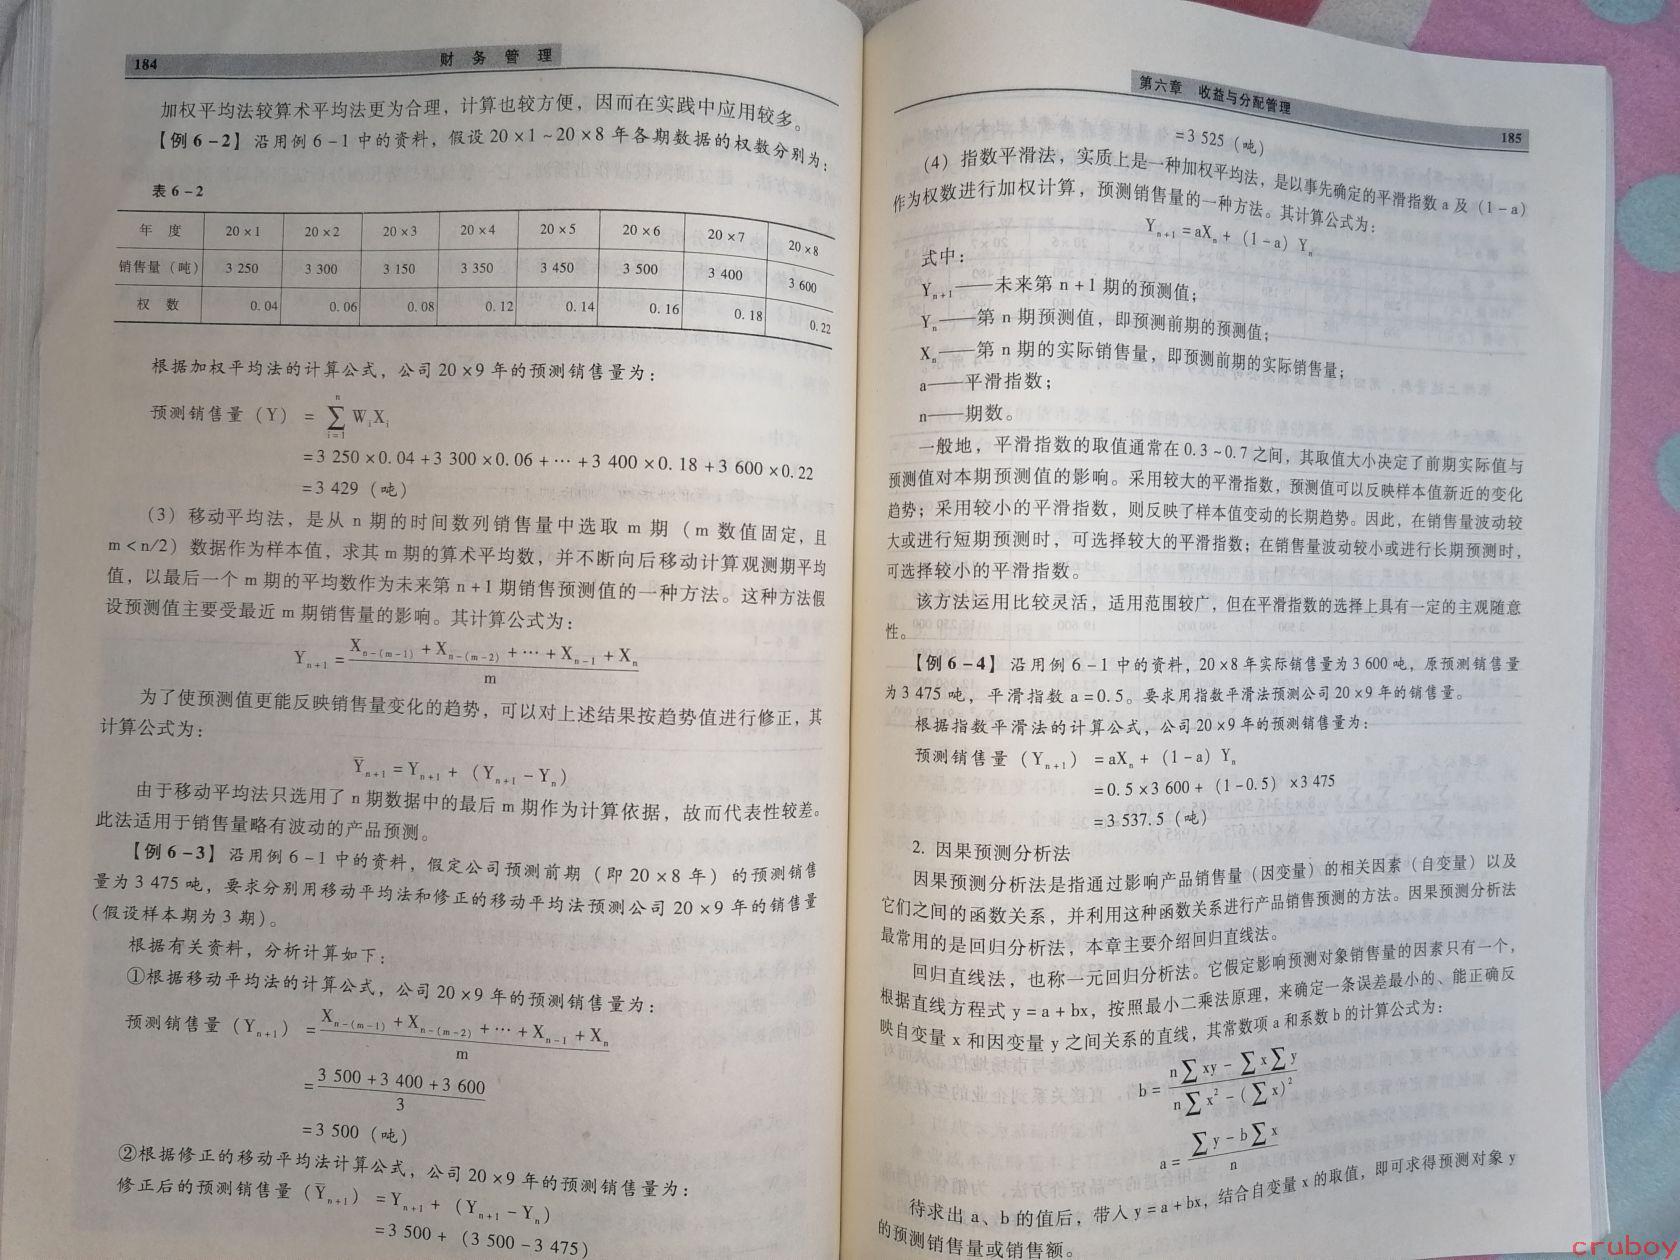 184 财 务 管 理
加权平均法较算术平均法更为合理，计算也较方便，因而在实践中应用较多。
【例 6－2】 沿用例 6－1 中的资料，假设 20×1～20×8 年各期数据的权数分别为：
表 6－2
年 度 20×1 20×2 20×3 20×4 20×5 20×6 20×7 20×8
销售量（吨） 3 250 3 300 3 150 3 350 3 450 3 500 3 400 3 600
权 数 0.04 0.06 0.08 0.12 0.14 0.16 0.18 0.22
根据加权平均法的计算公式，公司 20×9 年的预测销售量为：
预测销售量（Y） = ∑(i=1→n) WᵢXᵢ
=3 250×0.04+3 300×0.06+…+3 400×0.18+3 600×0.22
=3 429（吨）
（3）移动平均法，是从 n 期的时间数列销售量中选取 m 期（m 数值固定，且
m＜n/2）数据作为样本值，求其 m 期的算术平均数，并不断向后移动计算观测期平均
值，以最后一个 m 期的平均数作为未来第 n+1 期销售预测值的一种方法。这种方法假
设预测值主要受最近 m 期销售量的影响。其计算公式为：
Yₙ₊₁ = (Xₙ₋₍ₘ₋₁₎+Xₙ₋₍ₘ₋₂₎+…+Xₙ₋₁+Xₙ)/m
为了使预测值更能反映销售量变化的趋势，可以对上述结果按趋势值进行修正，其
计算公式为：
Ȳₙ₊₁=Yₙ₊₁+（Yₙ₊₁−Yₙ）
由于移动平均法只选用了 n 期数据中的最后 m 期作为计算依据，故而代表性较差。
此法适用于销售量略有波动的产品预测。
【例 6－3】 沿用例 6－1 中的资料，假定公司预测前期（即 20×8 年）的预测销售
量为 3 475 吨，要求分别用移动平均法和修正的移动平均法预测公司 20×9 年的销售量
（假设样本期为 3 期）。
根据有关资料，分析计算如下：
①根据移动平均法的计算公式，公司 20×9 年的预测销售量为：
预测销售量（Yₙ₊₁） = (Xₙ₋₍ₘ₋₁₎+Xₙ₋₍ₘ₋₂₎+…+Xₙ₋₁+Xₙ)/m
=(3 500+3 400+3 600)/3
=3 500（吨）
②根据修正的移动平均法计算公式，公司 20×9 年的预测销售量为：
修正后的预测销售量（Ȳₙ₊₁）=Yₙ₊₁+（Yₙ₊₁−Yₙ）
=3 500+（3 500−3 475）
第六章 收益与分配管理 185
=3 525（吨）
（4）指数平滑法，实质上是一种加权平均法，是以事先确定的平滑指数 a 及（1−a）
作为权数进行加权计算，预测销售量的一种方法。其计算公式为：
Yₙ₊₁=aXₙ+（1−a）Yₙ
式中：
Yₙ₊₁——未来第 n+1 期的预测值；
Yₙ——第 n 期预测值，即预测前期的预测值；
Xₙ——第 n 期的实际销售量，即预测前期的实际销售量；
a——平滑指数；
n——期数。
一般地，平滑指数的取值通常在 0.3～0.7 之间，其取值大小决定了前期实际值与
预测值对本期预测值的影响。采用较大的平滑指数，预测值可以反映样本值新近的变化
趋势；采用较小的平滑指数，则反映了样本值变动的长期趋势。因此，在销售量波动较
大或进行短期预测时，可选择较大的平滑指数；在销售量波动较小或进行长期预测时，
可选择较小的平滑指数。
该方法运用比较灵活，适用范围较广，但在平滑指数的选择上具有一定的主观随意
性。
【例 6－4】 沿用例 6－1 中的资料，20×8 年实际销售量为 3 600 吨，原预测销售量
为 3 475 吨，平滑指数 a=0.5。要求用指数平滑法预测公司 20×9 年的销售量。
根据指数平滑法的计算公式，公司 20×9 年的预测销售量为：
预测销售量（Yₙ₊₁） =aXₙ+（1−a）Yₙ
=0.5×3 600+（1−0.5）×3 475
=3 537.5（吨）
2. 因果预测分析法
因果预测分析法是指通过影响产品销售量（因变量）的相关因素（自变量）以及
它们之间的函数关系，并利用这种函数关系进行产品销售预测的方法。因果预测分析法
最常用的是回归分析法，本章主要介绍回归直线法。
回归直线法，也称一元回归分析法。它假定影响预测对象销售量的因素只有一个，
根据直线方程式 y=a+bx，按照最小二乘法原理，来确定一条误差最小的、能正确反
映自变量 x 和因变量 y 之间关系的直线，其常数项 a 和系数 b 的计算公式为：
b=(n∑xy−∑x∑y)/(n∑x²−(∑x)²)
a=(∑y−b∑x)/n
待求出 a、b 的值后，带入 y=a+bx，结合自变量 x 的取值，即可求得预测对象 y
的预测销售量或销售额。
cruboy